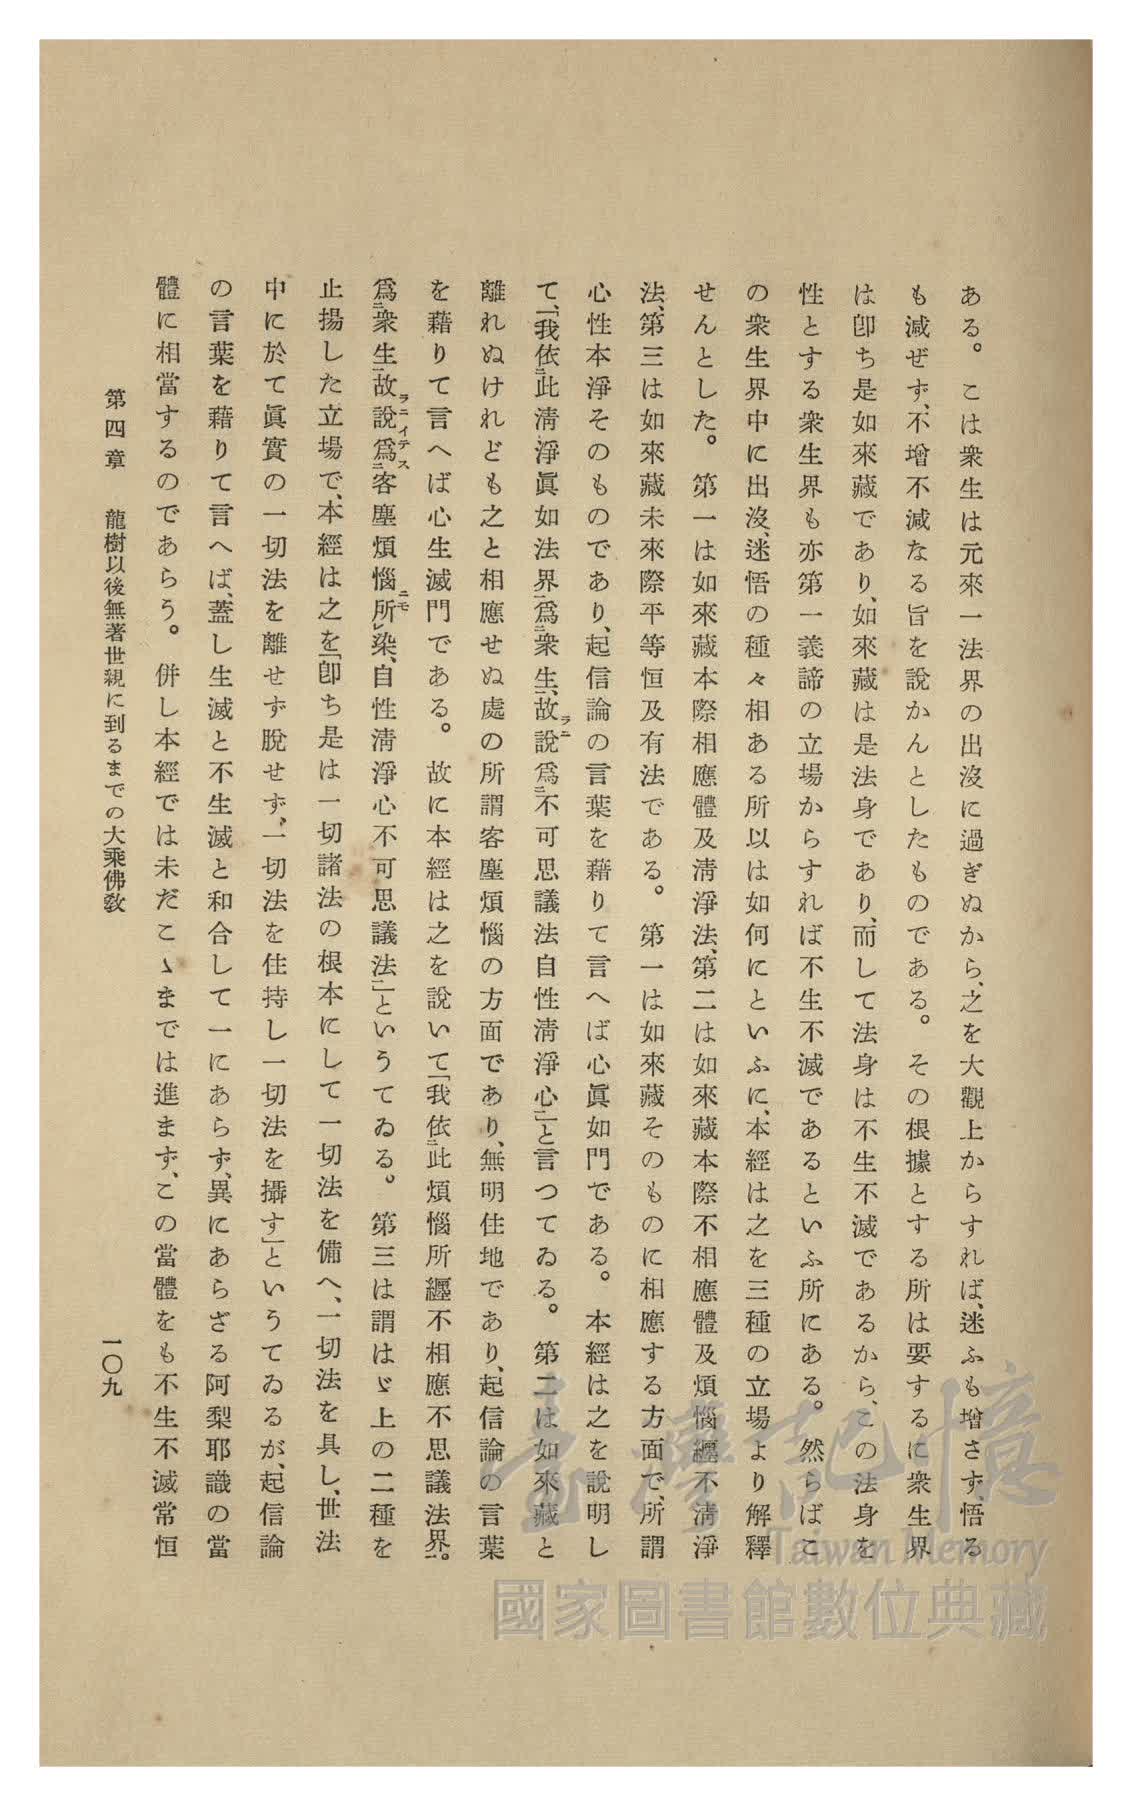 ある。こは衆生は元來一法界の出沒に過ぎぬから、之を大觀上からすれば、迷ふも增さず、悟る
も減ぜず、不增不減なる旨を說かんとしたものである。その根據とする所は要するに衆生界
は卽ち是如來藏であり、如來藏は是法身であり、而して法身は不生不滅であるから、この法身を
性とする衆生界も亦第一義諦の立場からすれば不生不滅であるといふ所にある。然らばこ
の衆生界中に出沒、迷悟の種々相ある所以は如何にといふに、本經は之を三種の立場より解釋
せんとした。第一は如來藏本際相應體及淸淨法、第二は如來藏本際不相應體及煩惱纒不淸淨
法、第三は如來藏未來際平等恒及有法である。第一は如來藏そのものに相應する方面で、所謂
心性本淨そのものであり、起信論の言葉を藉りて言へば心眞如門である。本經は之を說明し
て、「我依㆓此淸淨眞如法界㆒、爲㆓衆生㆒、故說爲㆓不可思議法自性淸淨心㆒」と言つてゐる。第二は如來藏と
離れぬけれども之と相應せぬ處の所謂客塵煩惱の方面であり、無明住地であり、起信論の言葉
を藉りて言へば心生滅門である。故に本經は之を說いて「我依㆓此煩惱所纒不相應不思議法界㆒。
爲㆓衆生㆒故說爲㆓客塵煩惱所㆑染、自性淸淨心不可思議法㆒」というてゐる。第三は謂はゞ上の二種を
止揚した立場で、本經は之を「卽ち是は一切諸法の根本にして一切法を備へ、一切法を具し、世法
中に於て眞實の一切法を離せず脫せず、一切法を住持し一切法を攝す」というてゐるが、起信論
の言葉を藉りて言へば、蓋し生滅と不生滅と和合して一にあらず、異にあらざる阿梨耶識の當
體に相當するのであらう。併し本經では未だこゝまでは進まず、この當體をも不生不滅常恒
第四章　龍樹以後無著世親に到るまでの大乘佛敎
一〇九
臺灣記憶
Taiwan Memory
國家圖書館數位典藏